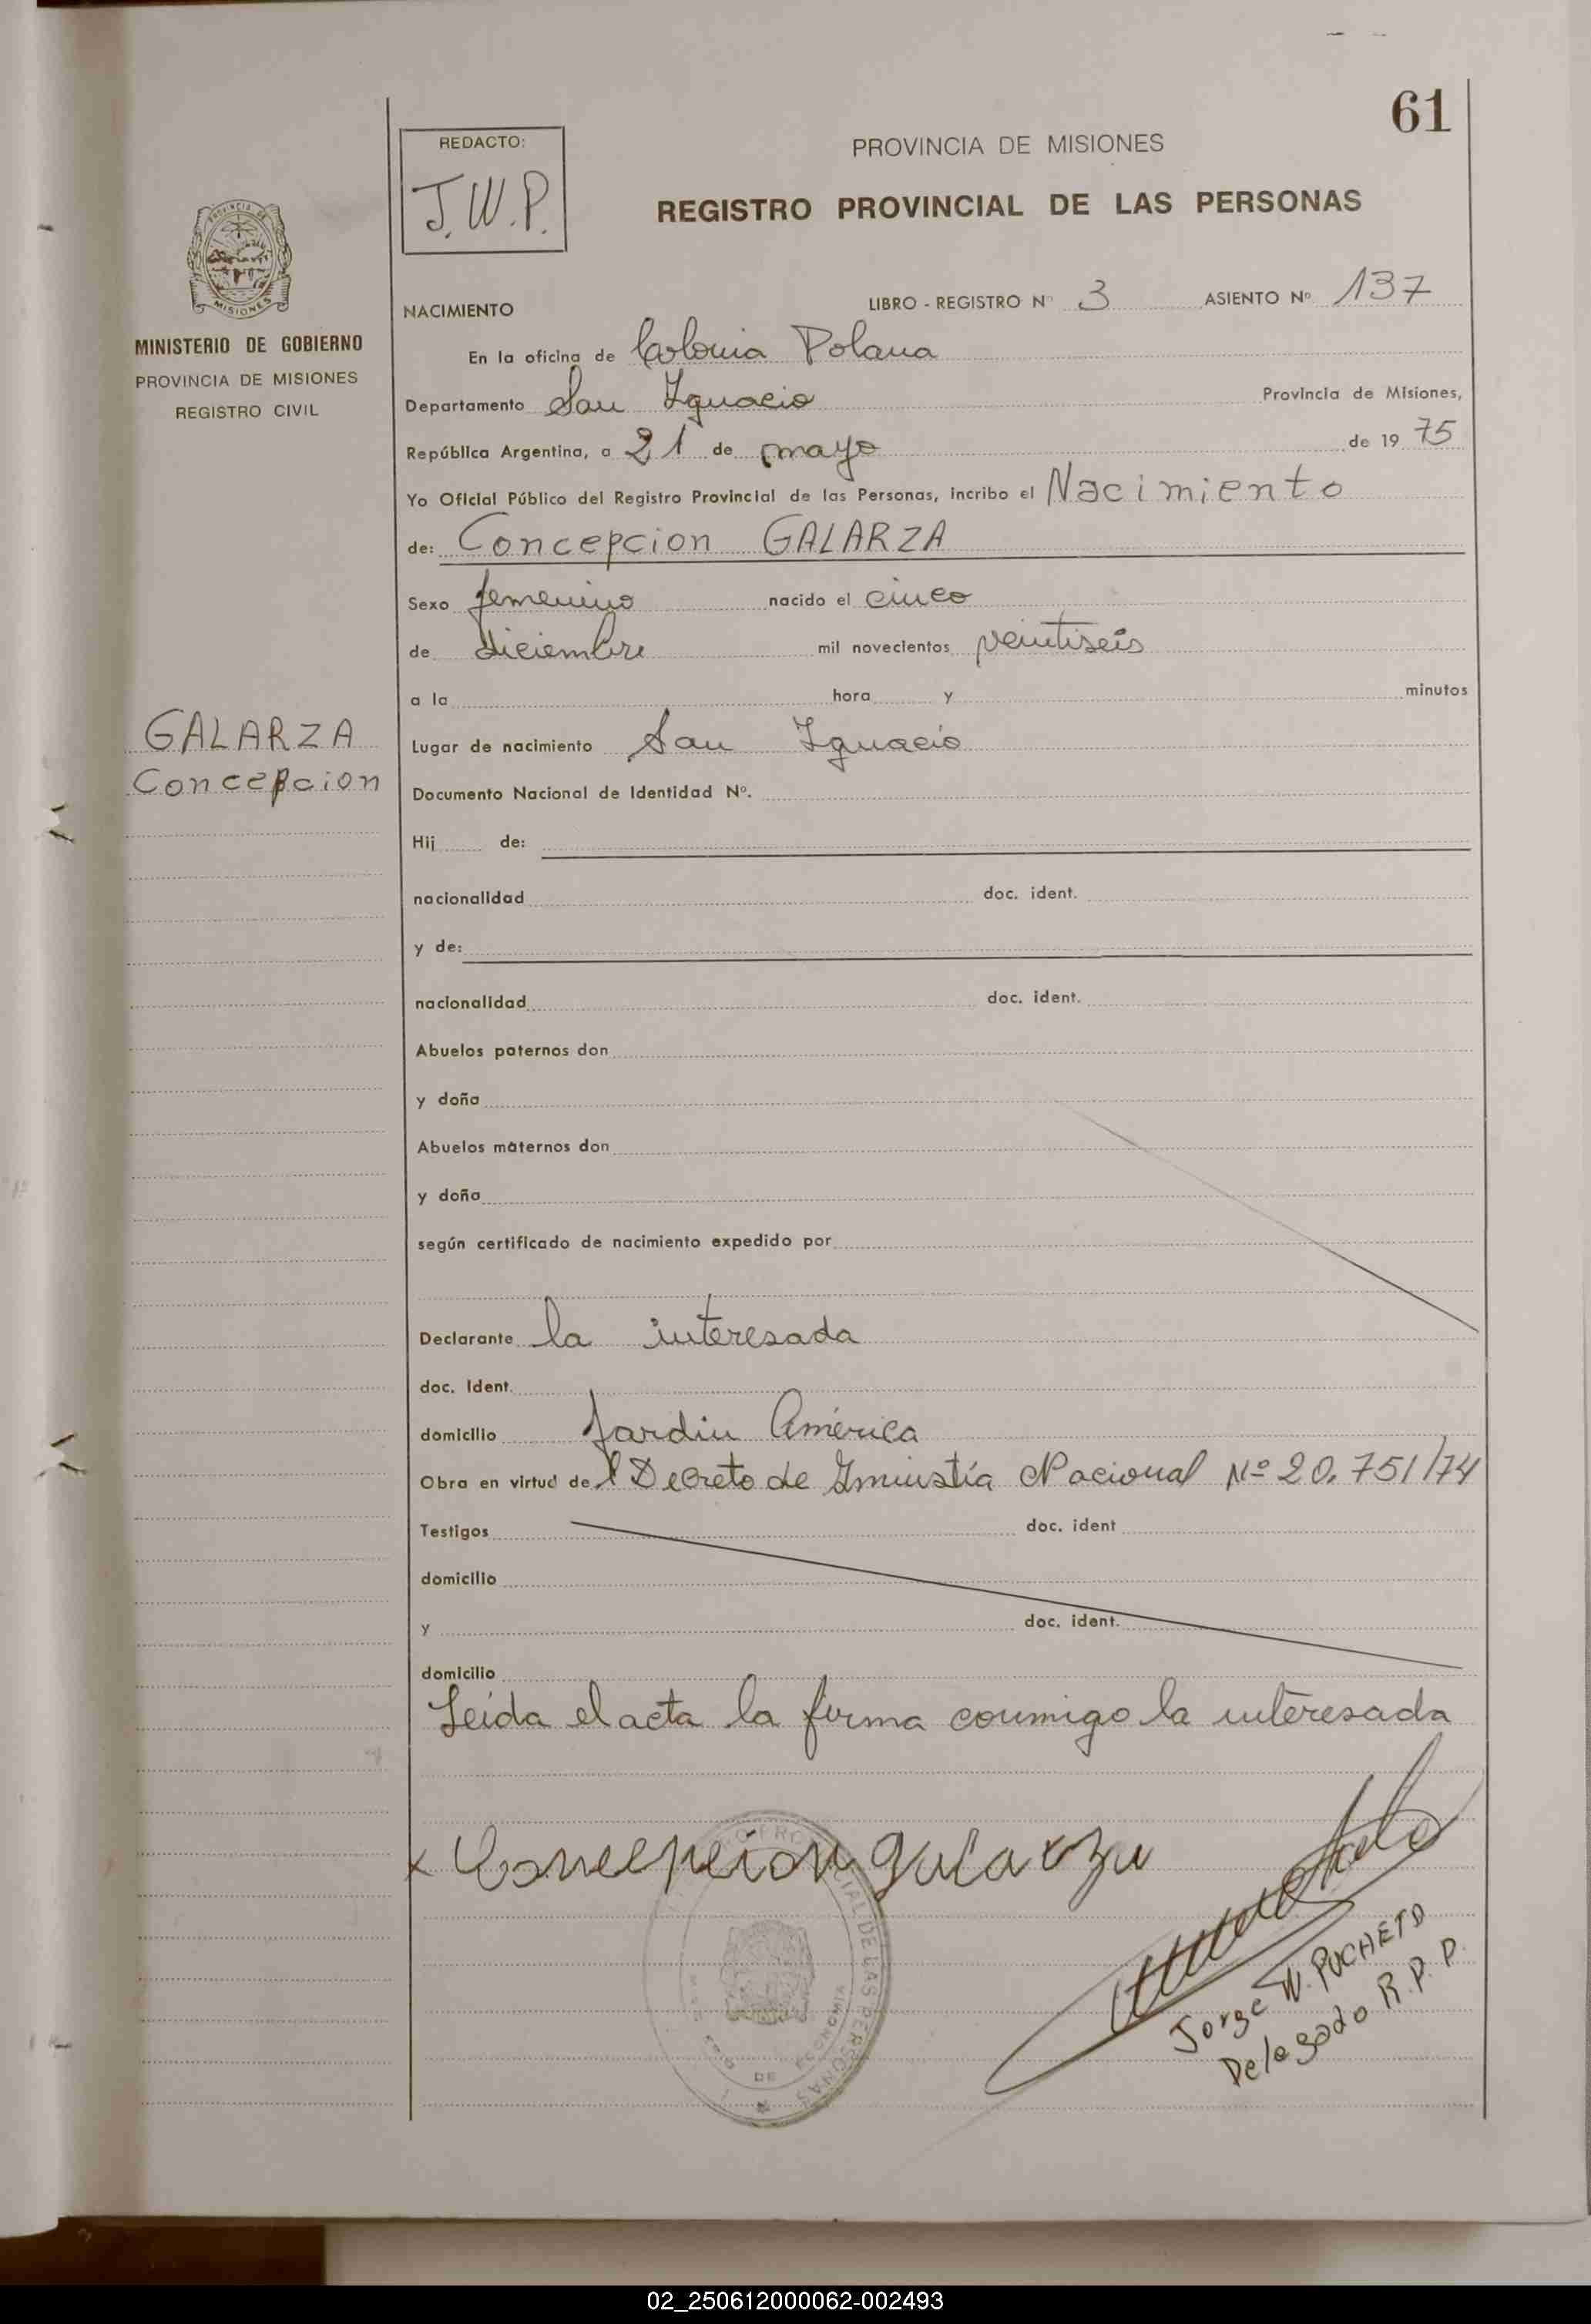 61
REDACTO:
J.W.P.
PROVINCIA DE MISIONES
REGISTRO PROVINCIAL DE LAS PERSONAS
MISIONES
MINISTERIO DE GOBIERNO
PROVINCIA DE MISIONES
REGISTRO CIVIL
NACIMIENTO LIBRO - REGISTRO Nº 3 ASIENTO Nº 137
En la oficina de Colonia Polana
Departamento San Ignacio Provincia de Misiones,
República Argentina, a 21 de mayo de 19 75
Yo Oficial Público del Registro Provincial de las Personas, incribo el Nacimiento
de: Concepcion GALARZA
Sexo femenino nacido el cinco
de diciembre mil novecientos veintiseis
a la hora y minutos
GALARZA
Concepcion
Lugar de nacimiento San Ignacio
Documento Nacional de Identidad Nº.
Hij de:
nacionalidad doc. ident.
y de:
nacionalidad doc. ident.
Abuelos paternos don
y doña
Abuelos maternos don
y doña
según certificado de nacimiento expedido por
Declarante la interesada
doc. Ident.
domicilio Jardin América
Obra en virtud de l Decreto de Aminstía Nacional Nº 20.751/74
Testigos doc. ident
domicilio
y doc. ident.
domicilio
Leída el acta la firma conmigo la interesada
x Concepcion galarza
Jorge W. PUCHETO
Delegado R.P.P.
PROVINCIAL DE LAS PERSONAS
DE ECONOMIA
02_250612000062-002493